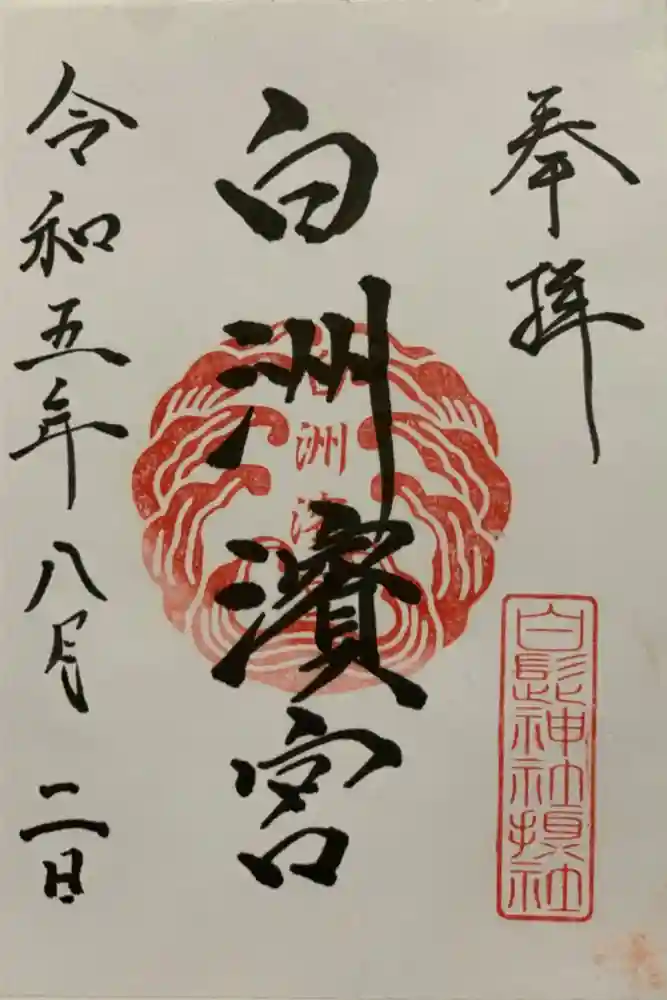 奉拝
白髭神社摂社
白洲濱宮
白洲濱
令和五年八月二日